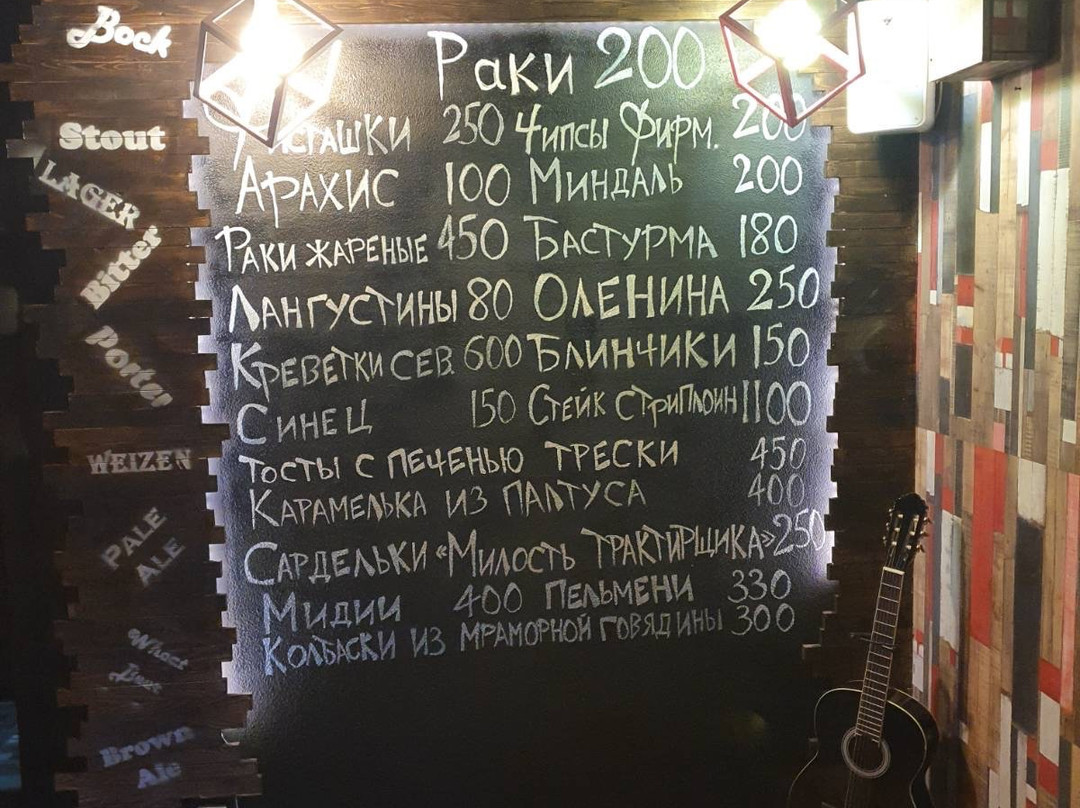 Bock
Stout
LAGER
Bitter
Porter
WEIZEN
PALE
ALE
Brown
Ale
Раки 200
Фисташки 250 Чипсы Фирм. 200
Арахис 100 Миндаль 200
Раки жареные 450 Бастурма 180
Лангустины 80 Оленина 250
Креветки сев. 600 Блинчики 150
Синец 150 Стейк Стриплоин 1100
Тосты с печенью трески 450
Карамелька из палтуса 400
Сардельки «Милость трактирщика» 250
Мидии 400 Пельмени 330
Колбаски из мраморной говядины 300